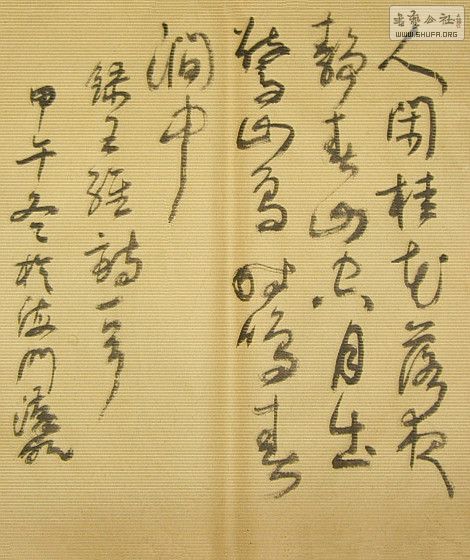 人閑桂花落夜
靜春山空月出
驚山鳥時鳴春
澗中
錄王維詩一首
甲午冬於海門
WWW.SHUFA.ORG